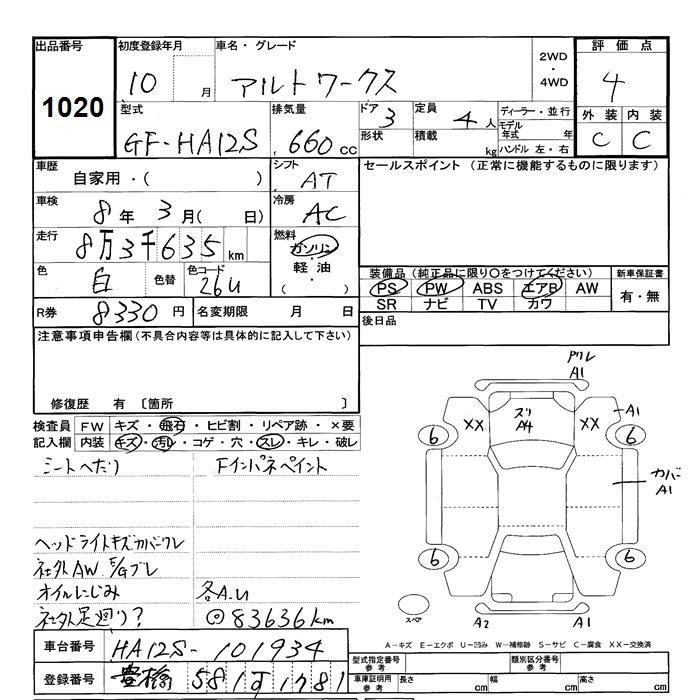 出品番号
1020
初度登録年月
10 月
車名・グレード
アルトワークス
2WD
・
4WD
評価点
4
外装 内装
C C
型式
GF-HA12S
排気量
660 cc
ドア 3
形状
定員 4 人
積載 kg
ディーラー・並行
モデル年式 年
ハンドル 左・右
車歴
自家用・( )
シフト
AT
車検
8 年 3 月 ( 日)
冷房
AC
走行
8万3千635 km
燃料
ガソリン
・
軽油
・
( )
色
白
色替
色コード
26U
R券
8330 円
名変期限 月 日
セールスポイント (正常に機能するものに限ります)
装備品 (純正品に限り○をつけてください)
PS PW ABS エアB AW
SR ナビ TV カワ
新車保証書
有・無
後日品
注意事項申告欄(不具合内容等は具体的に記入して下さい)
修復歴 有 〔箇所 〕
検査員
記入欄
FW キズ・飛石・ヒビ割・リペア跡・×要
内装 キズ・汚レ・コゲ・穴・スレ・キレ・破レ
シートへたり
Fインパネペイント
ヘッドライトキズカバーワレ
社外AW E/Gブレ
オイルにじみ
各A.U
社外足廻り?
◎83636km
車台番号
HA12S-101934
登録番号
豊橋 581
A1
XX
ズリ
A4
XX
A1
6
6
カバー
A1
6
6
スペア
A2
A1
A-キズ E-エクボ U-凹み W-補修跡 S-サビ C-腐食 XX-交換済
型式指定番号
参考
類別区分番号
参考
車庫証明用
参考
長さ cm
幅 cm
高さ cm